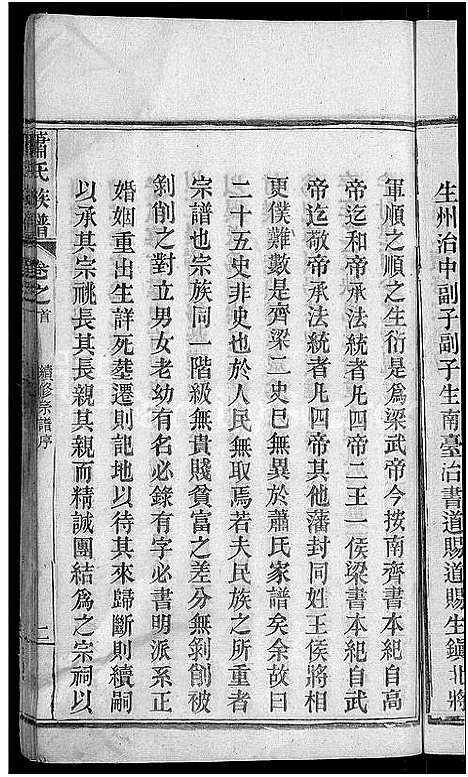 生州治中副子副子生南臺治書道賜道賜生鎮北將
軍順之順之生衍是爲梁武帝今按南齊書本紀自高
帝迄和帝承法統者凡四帝二王一侯梁書本紀自武
帝迄敬帝承法統者凡四帝其他藩封同姓王侯將相
更僕難數是齊梁二史已無異於蕭氏家譜矣余故曰
二十五史非史也於人民無取焉若夫民族之所重者
宗譜也宗族同一階級無貴賤貧富之差分無剝削被
剝削之對立男女老幼有名必錄有字必書明派系正
婚姻重出生詳死塟遷則記地以待其來歸斷則續嗣
以承其宗祧長其長親其親而精誠團結爲之宗祠以
蕭氏族譜 卷之首 續修宗譜序 二